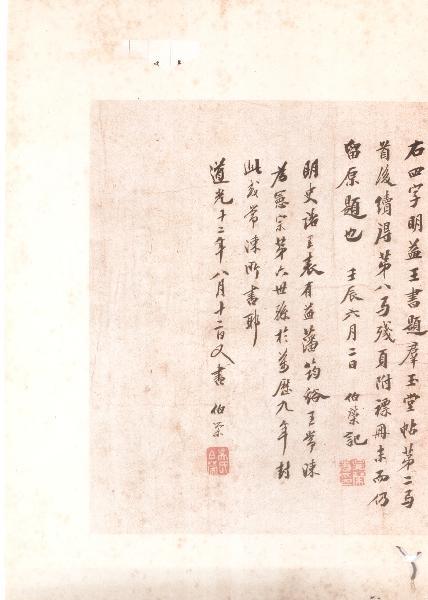 右四字明益王書題羣玉堂帖第二与
首後續得第八与殘頁附褾冊末而仍
留原題也 壬辰六月二日 伯榮記
明史諸王表有益藩筠谿王常湅
為憲宗第六世孫於萬歷九年封
此或常湅所書耶
道光十二年八月十二日又書 伯榮